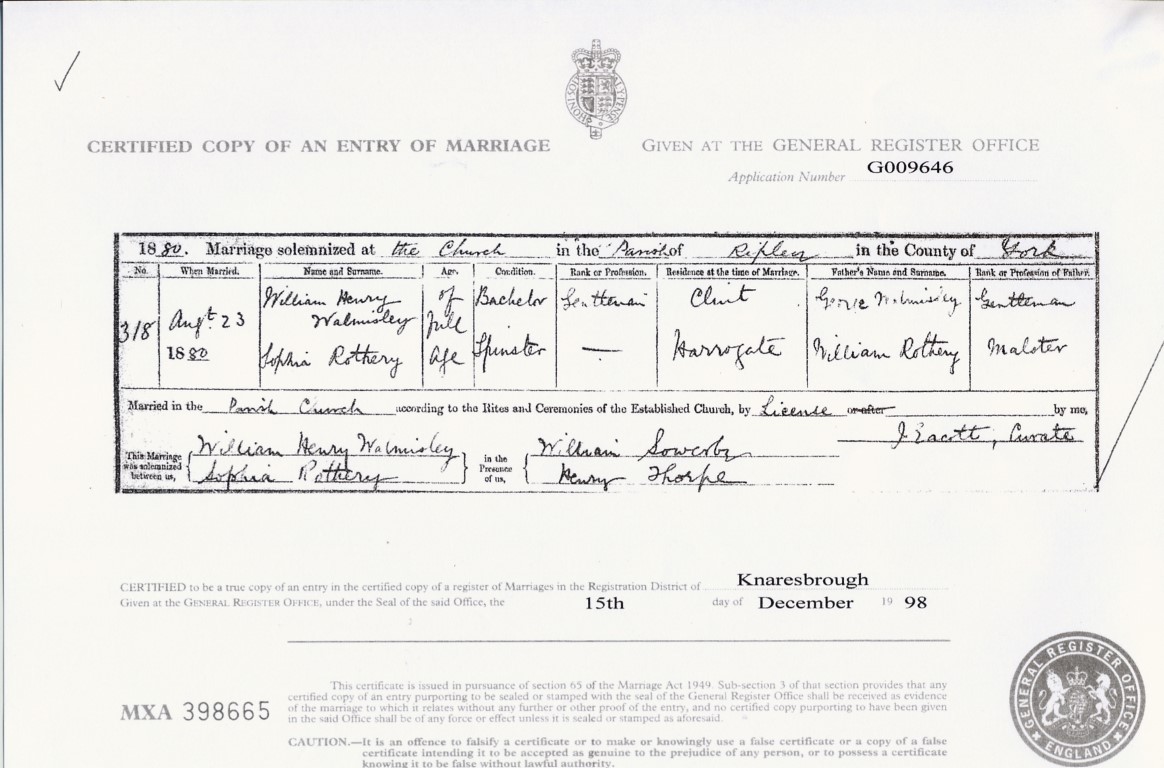 HONI SOIT QUI MAL Y PENSE
CERTIFIED COPY OF AN ENTRY OF MARRIAGE
GIVEN AT THE GENERAL REGISTER OFFICE
Application Number G009646
1880. Marriage solemnized at the Church in the Parish of Ripley in the County of York
No. When Married. Name and Surname. Age. Condition. Rank or Profession. Residence at the time of Marriage. Father's Name and Surname. Rank or Profession of Father.
318 Augt. 23 1880 William Henry Walmisley of full age Bachelor Gentleman Clint George Walmisley Gentleman
Sophia Rothery Spinster — Harrogate William Rothery Malster
Married in the Parish Church according to the Rites and Ceremonies of the Established Church, by License or after by me,
J Eacott, Curate
This Marriage was solemnized between us, William Henry Walmisley
Sophia Rothery
in the Presence of us, William Sowerby
Henry Thorpe
CERTIFIED to be a true copy of an entry in the certified copy of a register of Marriages in the Registration District of Knaresbrough
Given at the GENERAL REGISTER OFFICE, under the Seal of the said Office, the 15th day of December 19 98
This certificate is issued in pursuance of section 65 of the Marriage Act 1949. Sub-section 3 of that section provides that any
certified copy of an entry purporting to be sealed or stamped with the seal of the General Register Office shall be received as evidence
of the marriage to which it relates without any further or other proof of the entry, and no certified copy purporting to have been given
in the said Office shall be of any force or effect unless it is sealed or stamped as aforesaid.
MXA 398665
CAUTION.—It is an offence to falsify a certificate or to make or knowingly use a false certificate or a copy of a false
certificate intending it to be accepted as genuine to the prejudice of any person, or to possess a certificate
knowing it to be false without lawful authority.
GENERAL REGISTER OFFICE
ENGLAND